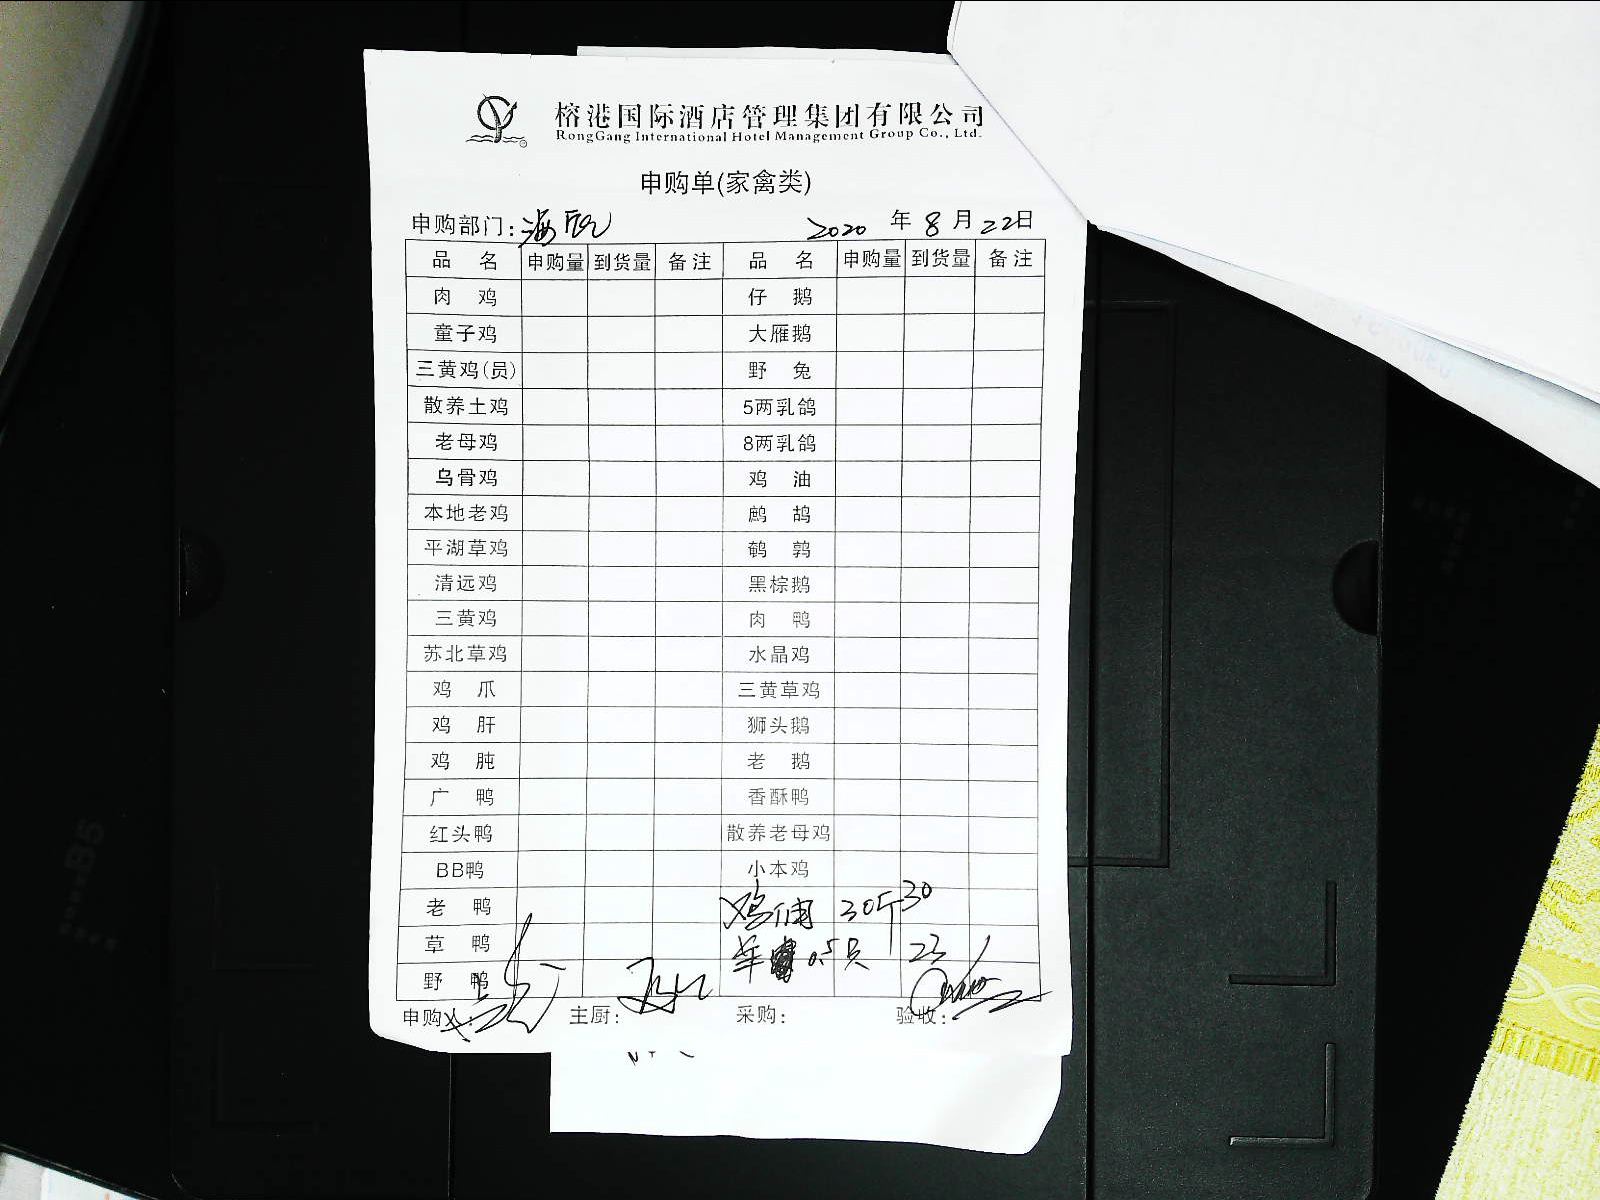 榕港国际酒店管理集团有限公司
RongGang International Hotel Management Group Co., Ltd.
申购单(家禽类)
申购部门: 2020 年 8 月 22日
品 名 申购量 到货量 备注 品 名 申购量 到货量 备注
肉 鸡 仔 鹅
童子鸡 大雁鹅
三黄鸡(员) 野 兔
散养土鸡 5两乳鸽
老母鸡 8两乳鸽
乌骨鸡 鸡 油
本地老鸡 鹧 鸪
平湖草鸡 鹌 鹑
清远鸡 黑棕鹅
三黄鸡 肉 鸭
苏北草鸡 水晶鸡
鸡 爪 三黄草鸡
鸡 肝 狮头鹅
鸡 肫 老 鹅
广 鸭 香酥鸭
红头鸭 散养老母鸡
BB鸭 小本鸡
老 鸭 鸡 30斤 30
草 鸭 羊 0.5只 23
野 鸭
申购人: 主厨: 采购: 验收: